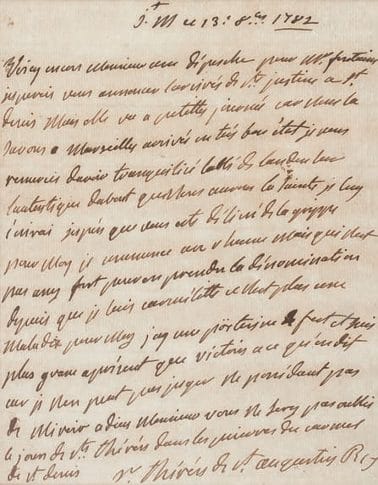 J. + M ce 13e 8bre 1782
Voicy encore Monsieur une dépesche pour Mr fontaine
je pouvois vous annoncer larrivée de Ste justine a St
denis Mais elle va a petittes journée car nous la
savons a Marseilles arrivée en très bon état je vous
remercie davoir tranquilisé labbé de
fantastique dabord quettres la Sainte je luy
écrirai jespere que vous ete delivré de la grippe
pour Moy je commence un rhume Mais qui n'est
pas assez fort pour en prendre la dénomination
depuis que je suis carmelitte ce n'est plus une
Maladie pour Moy jay une poiterine de fert et suis
plus grasse aprésent que victoire a ce qu'on dit
car je n'en peut pas juger ne possédant pas
de Miroir adieu Monsieur vous ne serez pas oublié
le jour de Ste thérèse dans les prieres des carmel
de St denis sr thérèse de St augustin R c i